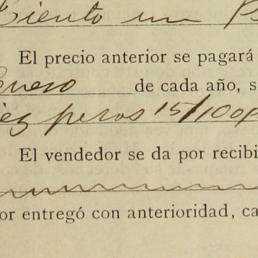 Ciento un P
El precio anterior se pagará
Enero de cada año, s
iez pesos 15/100
El vendedor se da por recibi
or entregó con anterioridad, ca